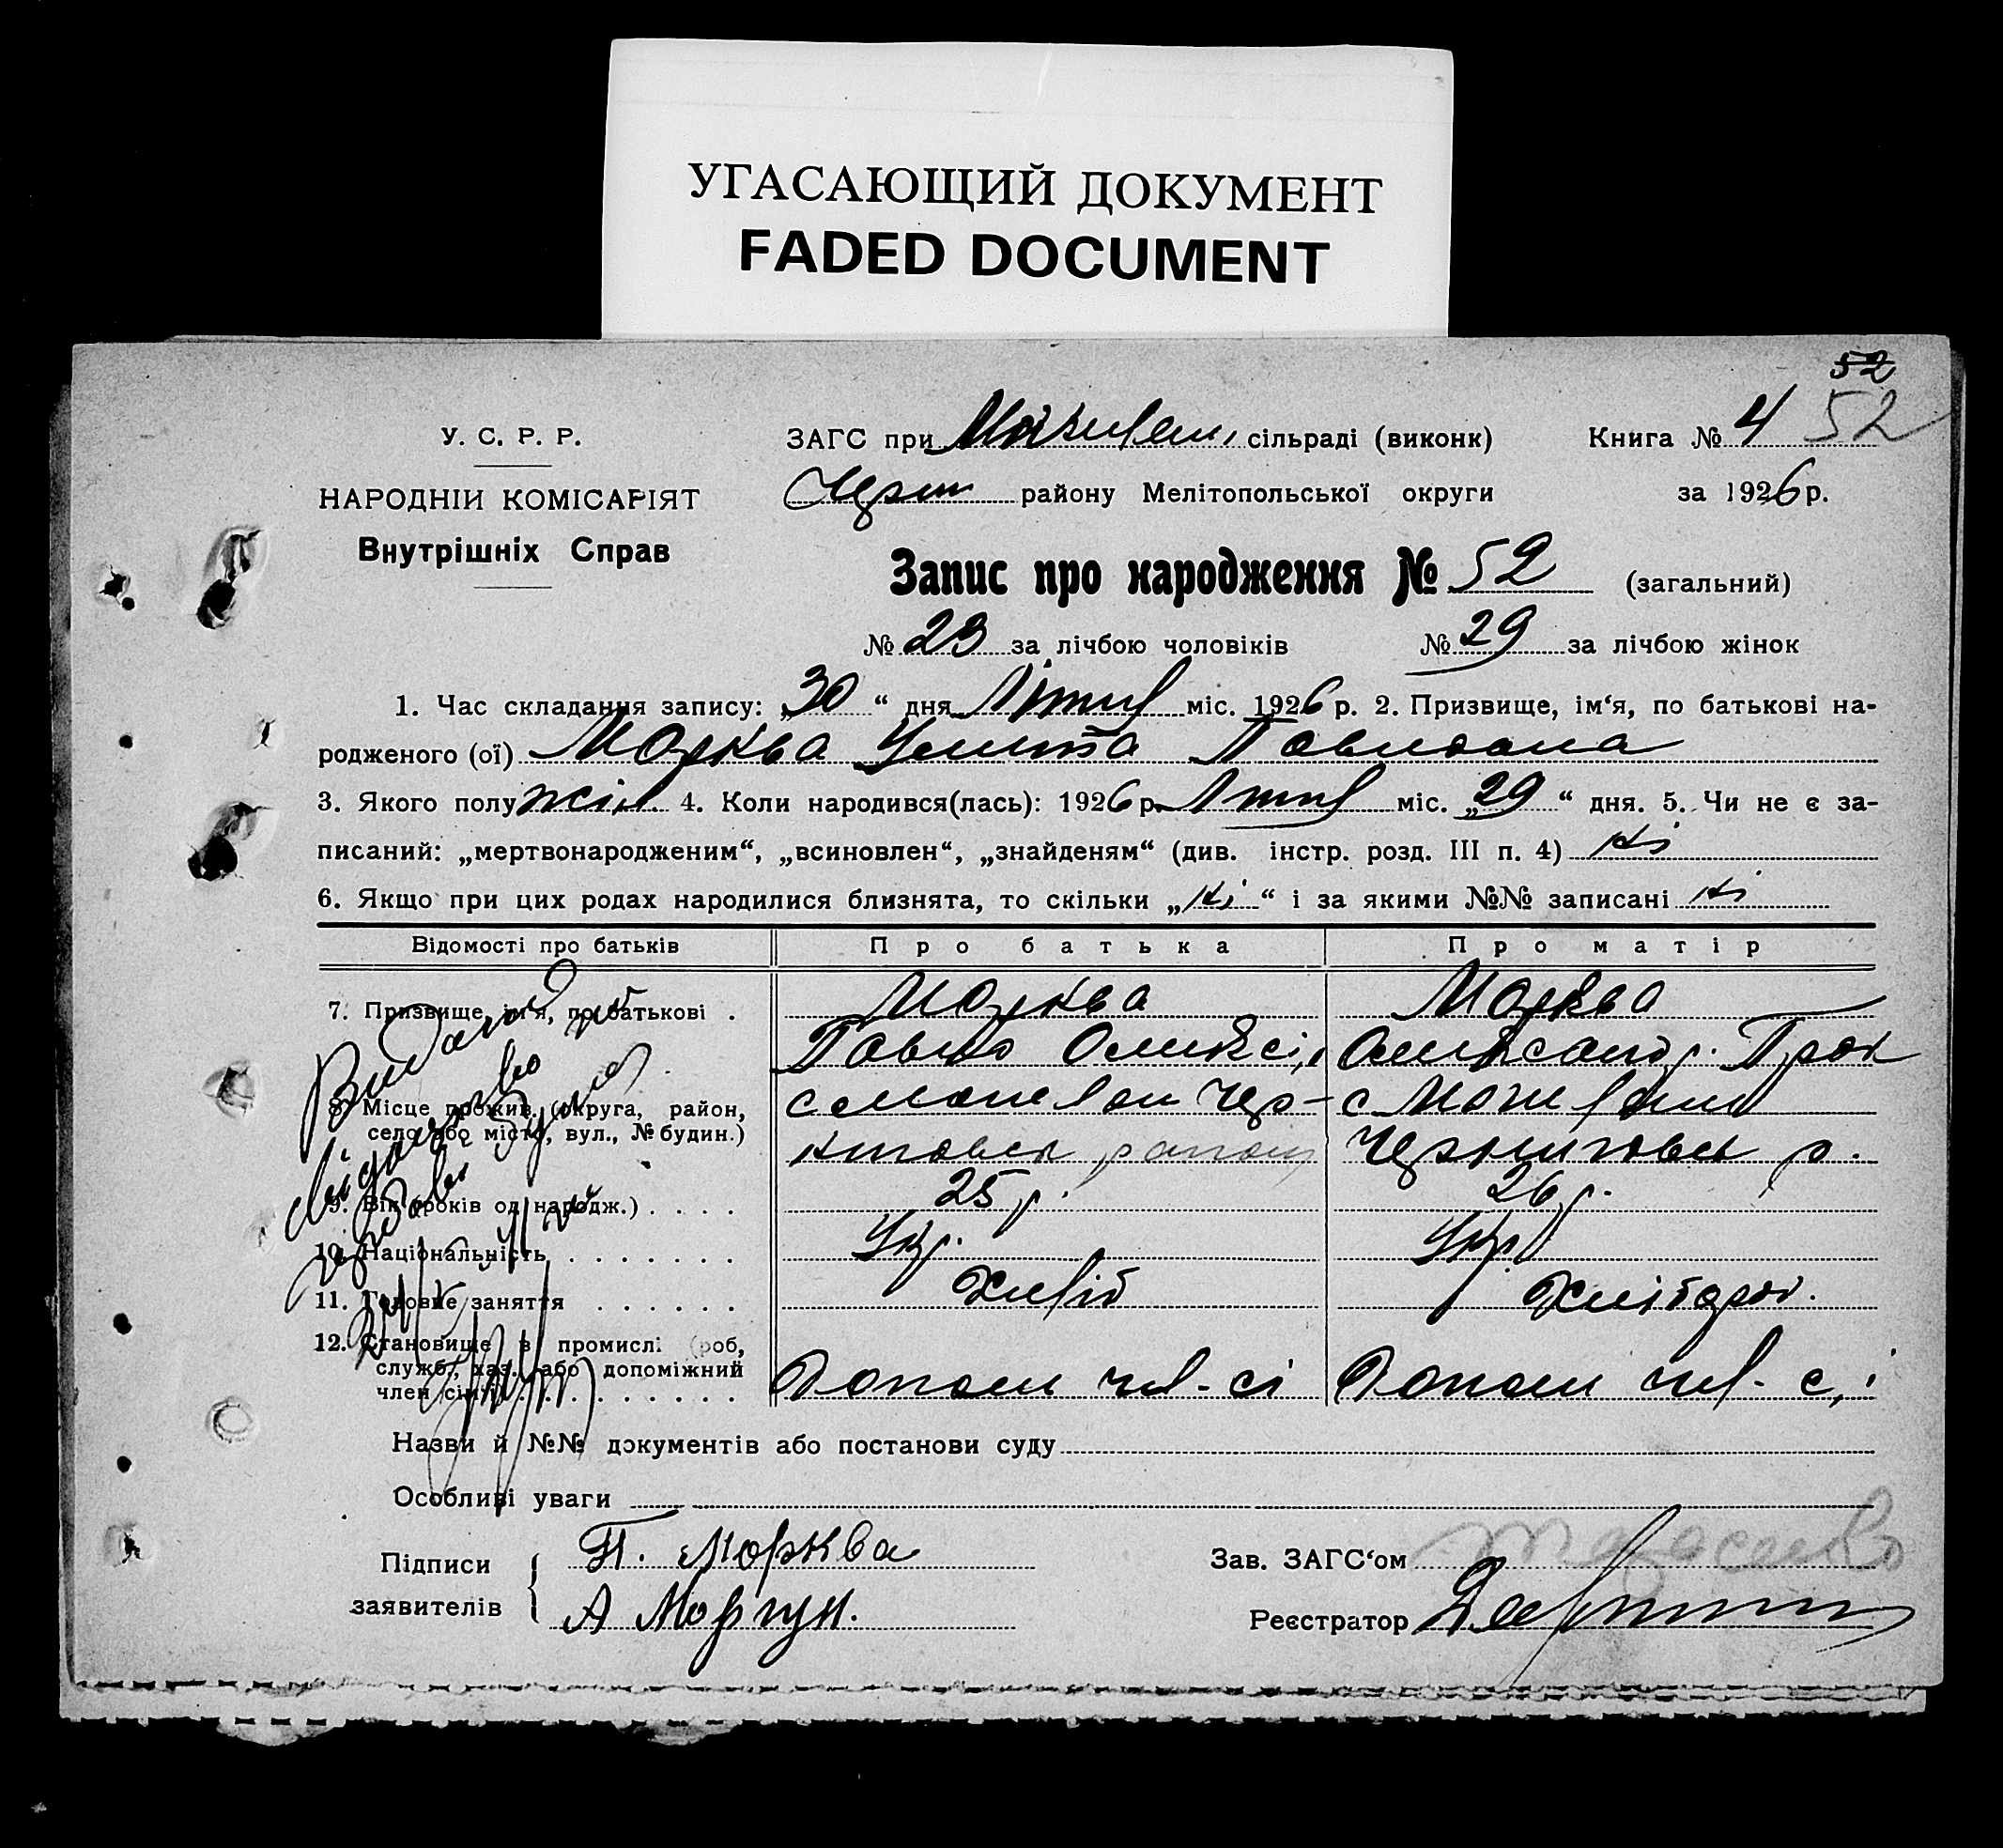 УГАСАЮЩИЙ ДОКУМЕНТ
FADED DOCUMENT
52
У. С. Р. Р.
ЗАГС при сільраді (виконк)
Книга № 4 52
НАРОДНІЙ КОМІСАРІЯТ
району Мелітопольської округи
за 1926 р.
Внутрішніх Справ
Запис про народження № 52 (загальний)
№ 23 за лічбою чоловіків № 29 за лічбою жінок
1. Час складання запису: „30“ дня міс. 1926 р. 2. Призвище, ім‘я, по батькові на-
родженого (ої) Морква Павловна
3. Якого полу жін. 4. Коли народився(лась): 1926 р. міс. „29“ дня. 5. Чи не є за-
писаний: „мертвонародженим“, „всиновлен“, „знайденям“ (див. інстр. розд. III п. 4) ні
6. Якщо при цих родах народилися близнята, то скільки „ні“ і за якими №№ записані ні
Відомості про батьків Про батька Про матір
7. Призвище, ім‘я, по батькові . Морква Морква
Павло Олексі Олександр. Прок
8. Місце прожив. (округа, район,
село або місто, вул., № будин.)
9. Вік (років од народж.) . . . . 25 р. 26 р.
10. Національність . . . . . . . Укр. Укр
11. Головне заняття . . . . . . Хліб Хлібороб.
12. Становище в промислі (роб,
служб., хаз. або допоміжний
член сім‘ї) . . . . . . . Допом чл. сі Допом чл. сі
Назви й №№ документів або постанови суду
Особливі уваги
Підписи П. Морква
Зав. ЗАГС‘ом
заявителів А Моргун.
Реєстратор